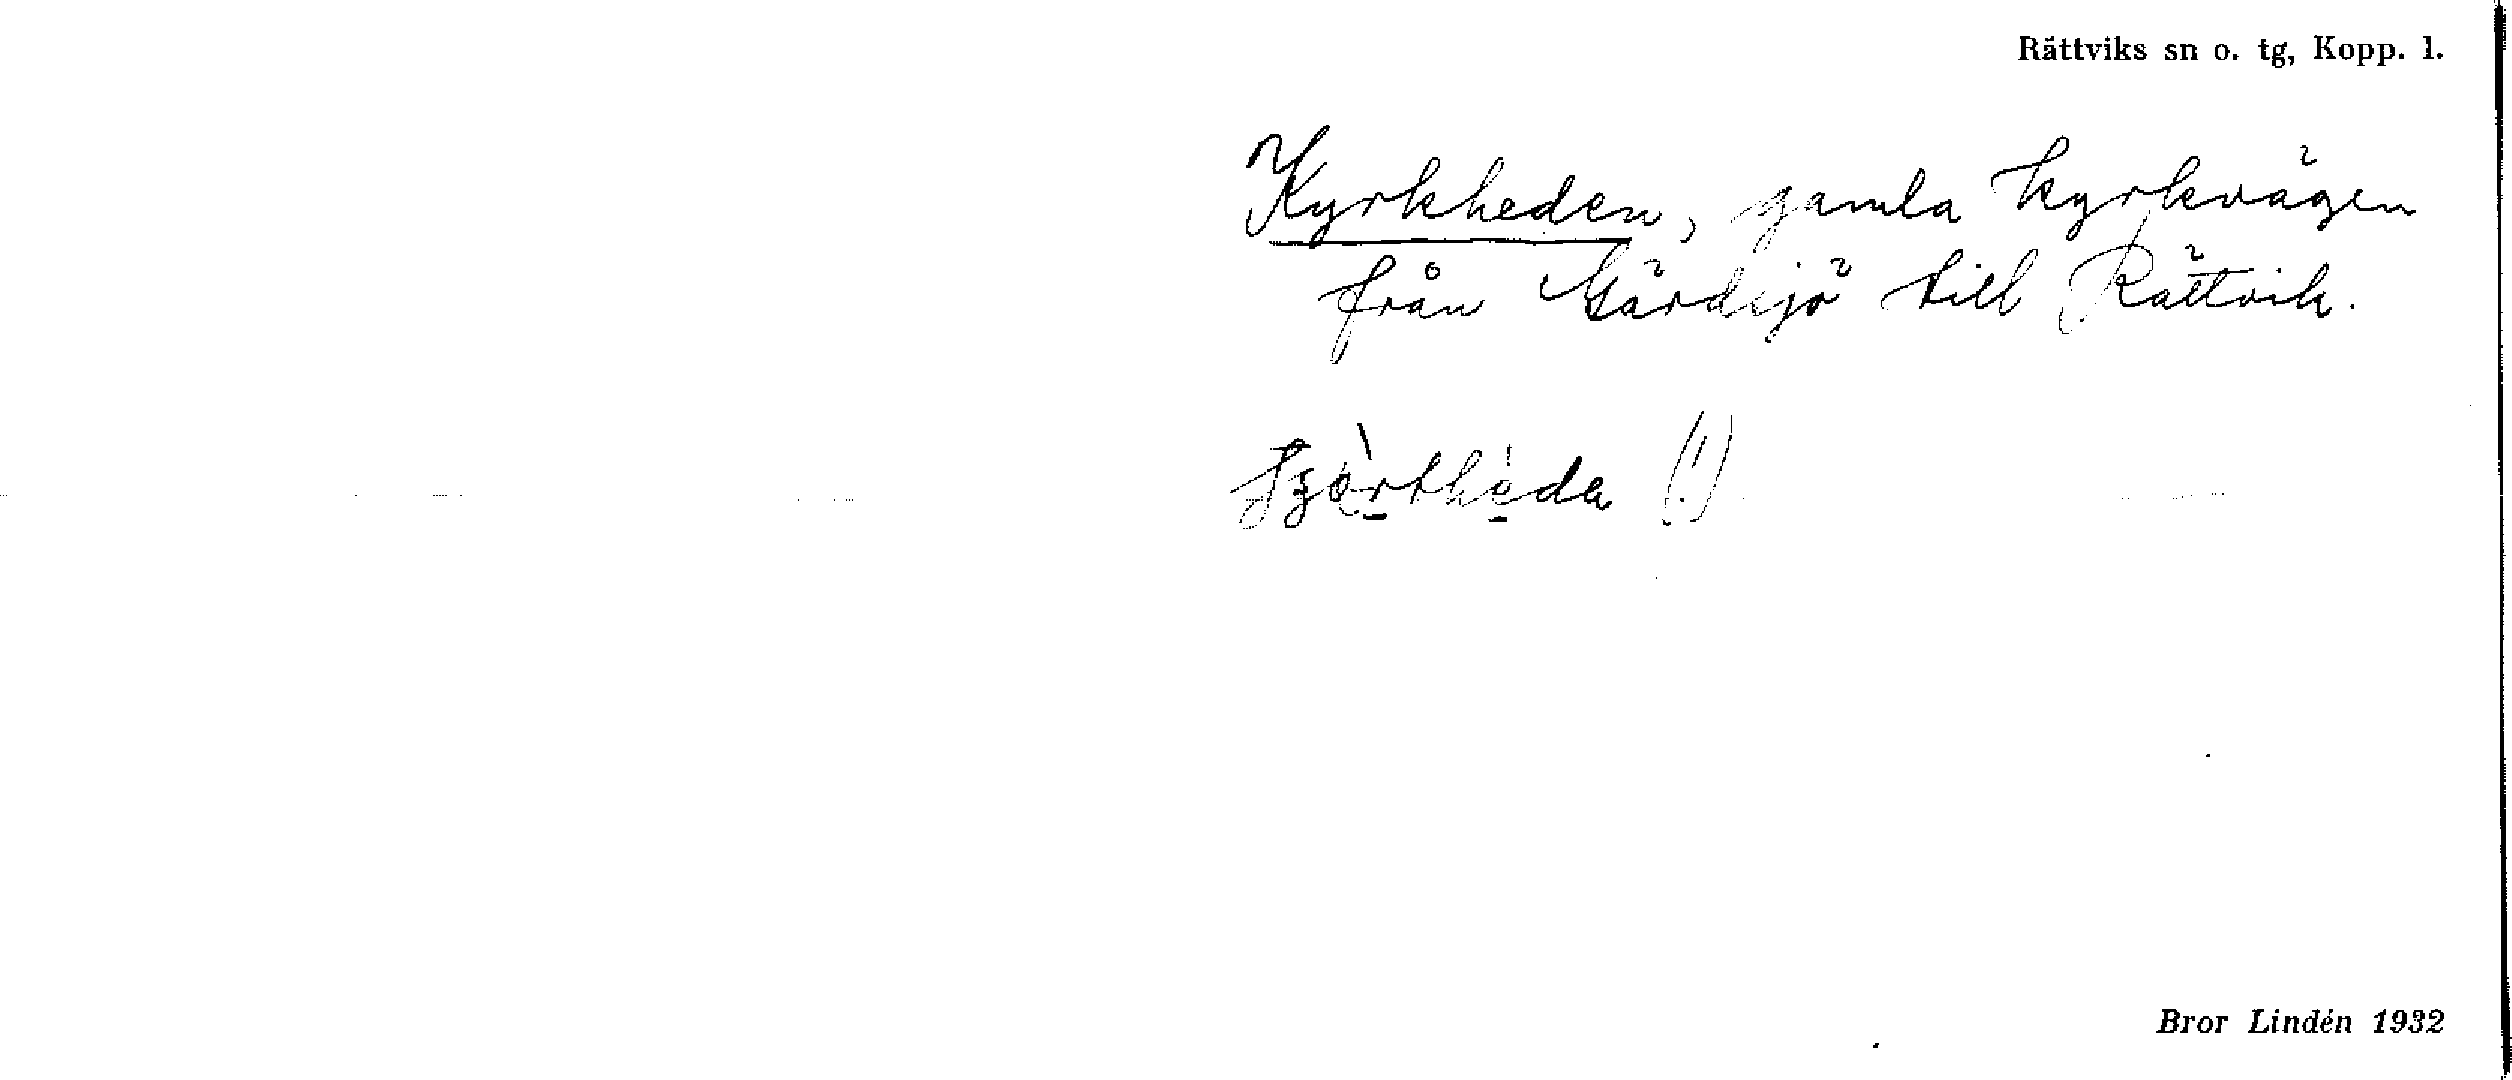 Rättviks sn o. tg, Kopp. l.
Kyrkheden, gamla kyrkvägen
från Gärdsjö till Rättvik.
(!)
Bror Lindén 1932